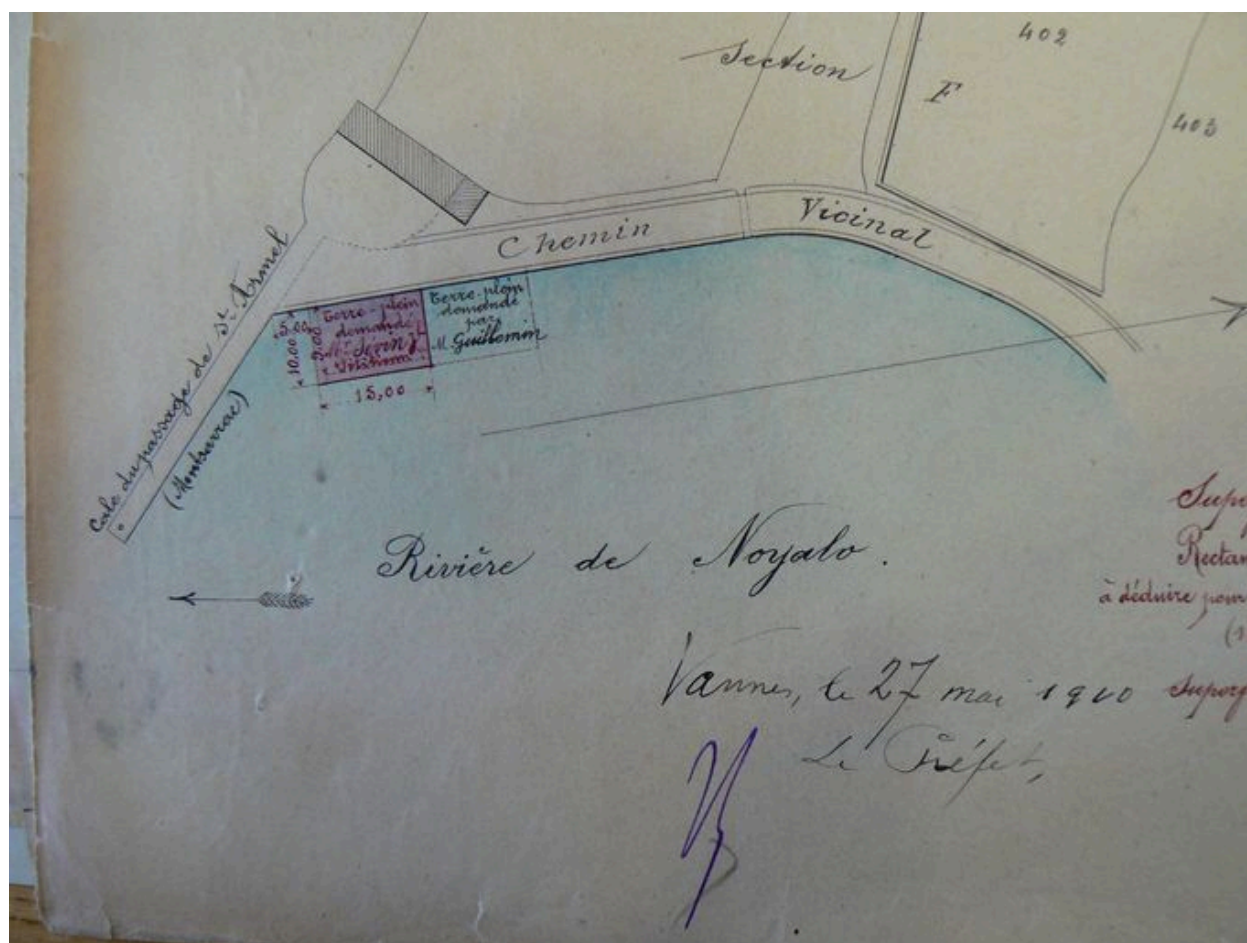 402
Section
F
403
Chemin Vicinal
Cale du passage de St Armel
(Montsarrac)
5.00
10.00
9.00
Terre-plein
demandé
Terre-plein
demandé
par
M. Guillemin
15,00
Rivière de Noyalo.
à déduire pour
Vannes, le 27 mai 1910
Le Préfet,